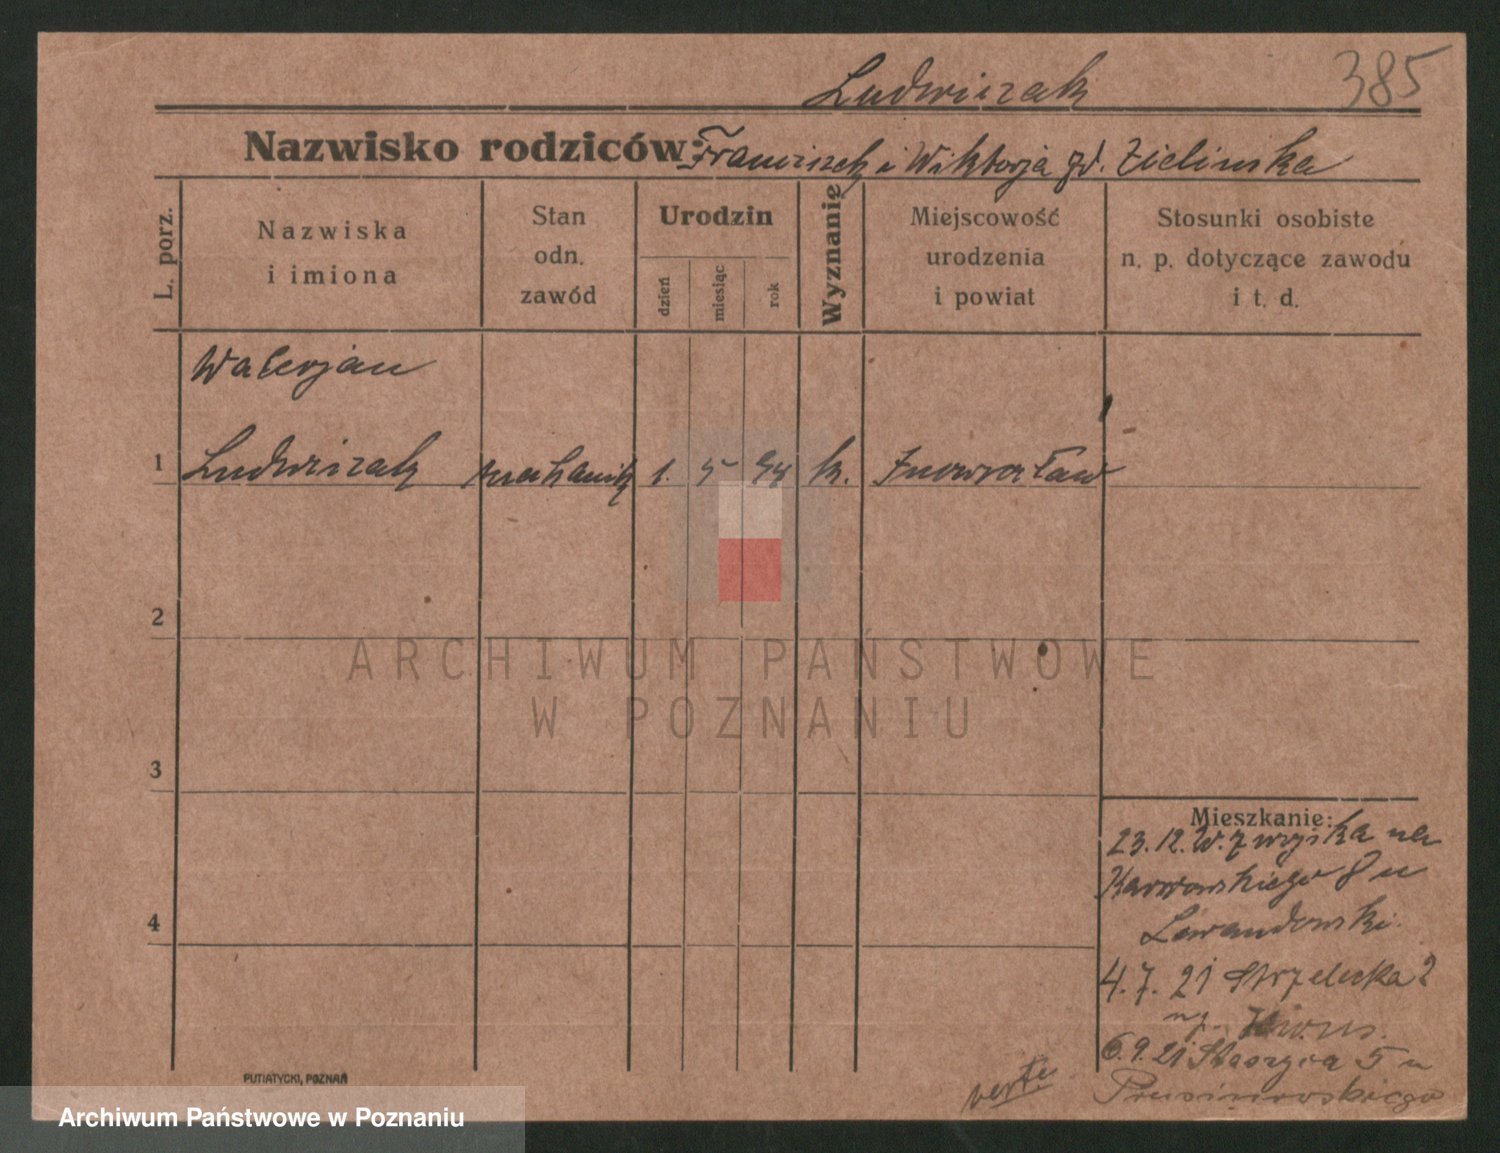 Ludwiczak 385
Nazwisko rodziców: Franciszek i Wiktorja zd. Zielinska
L. porz.
Nazwiska
i imiona
Stan
odn.
zawód
Urodzin
dzień
miesiąc
rok
Wyznanię
Miejscowość
urodzenia
i powiat
Stosunki osobiste
n. p. dotyczące zawodu
i t. d.
Waleryan
1 Ludwiczak mechanik 1. 5 94 k. Inowrocław
2
3
4
ARCHIWUM PAŃSTWOWE
W POZNANIU
Mieszkanie:
23.12. z wojska na
Karwowskiego 8 u
Lewandowski.
4.7.21 Strzelecka 2
6.9.21 Staszyca 5 u
Prusinowskiego
verte
PUTIATYCKI, POZNAŃ
Archiwum Państwowe w Poznaniu